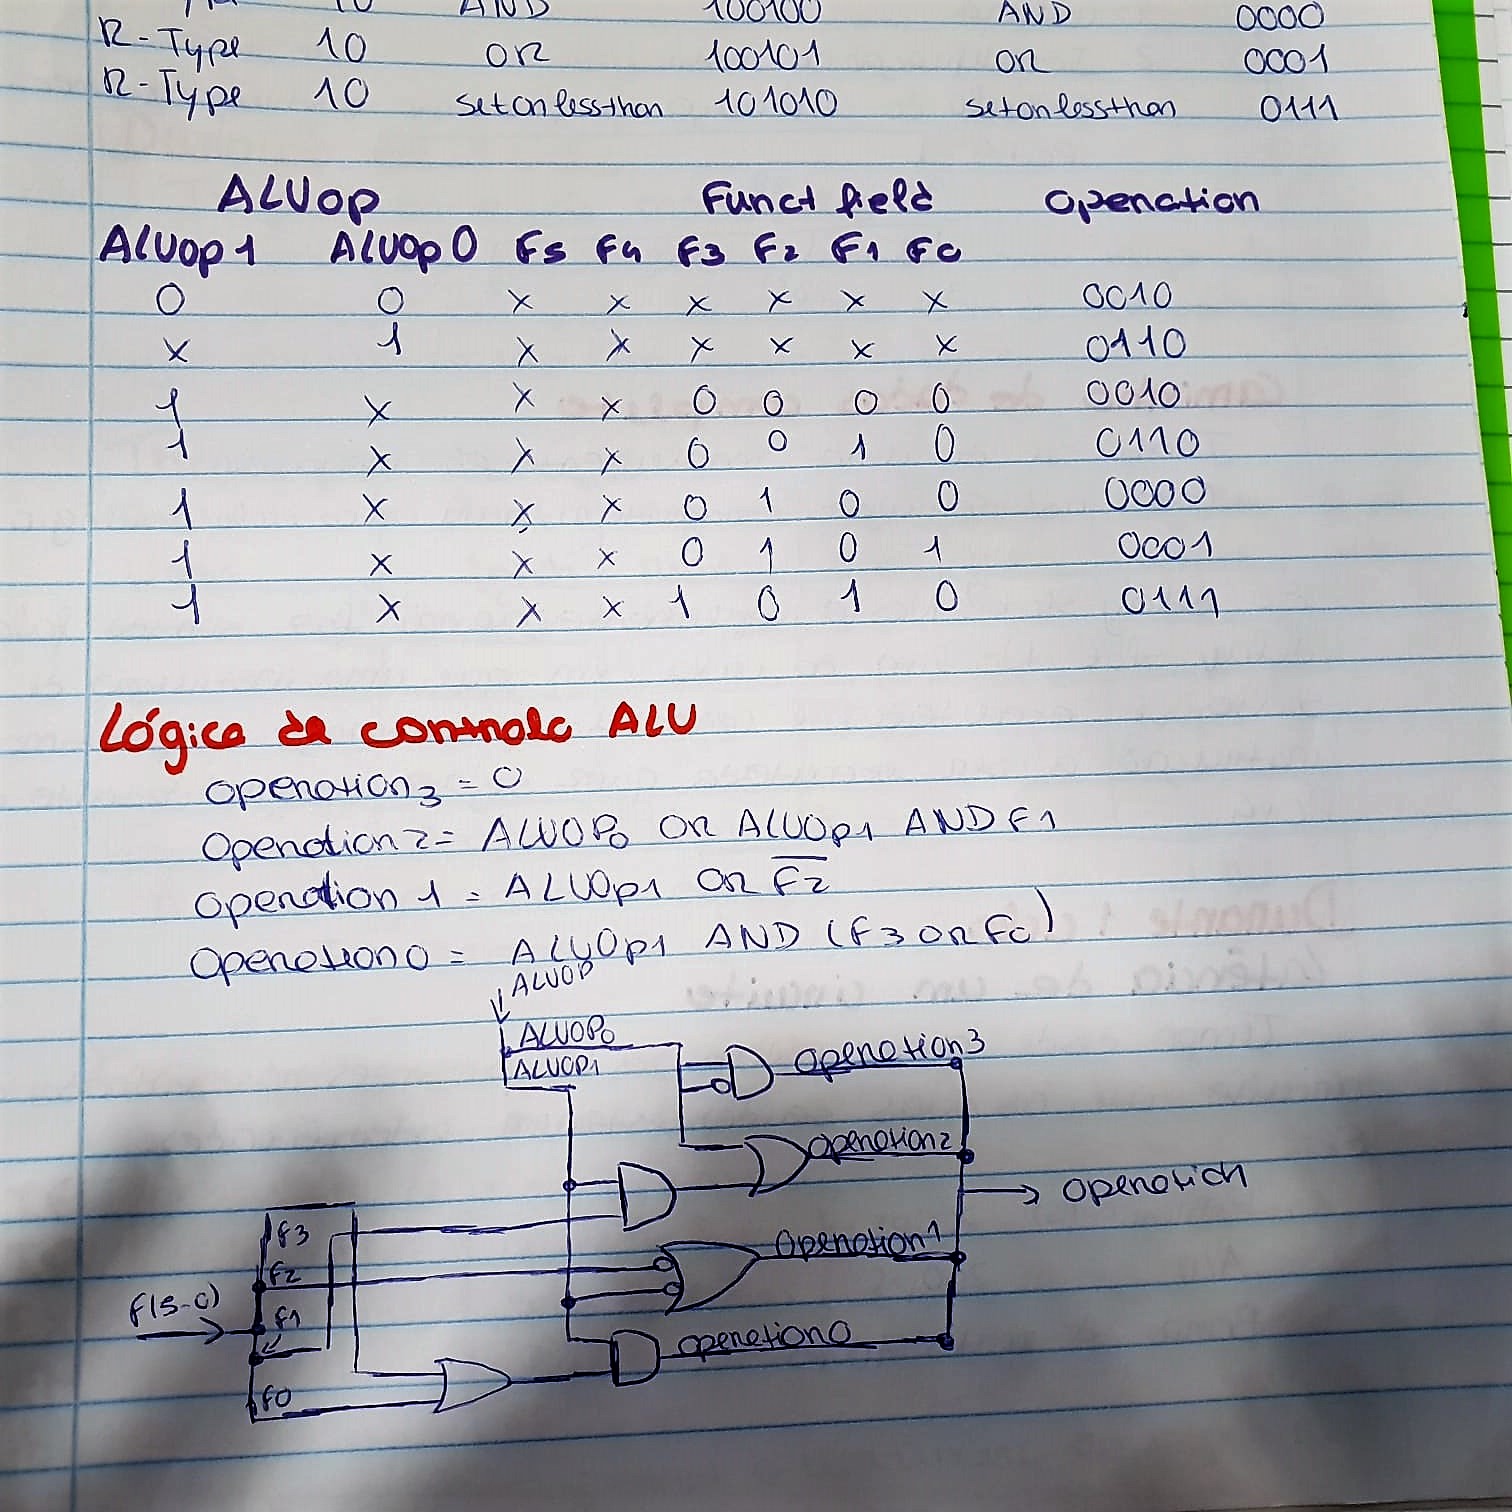 10 AND 100100 AND 0000
R-Type 10 OR 100101 OR 0001
R-Type 10 setonlessthan 101010 setonlessthan 0111
ALUop Funct field operation
ALUop1 ALUop0 F5 F4 F3 F2 F1 F0
0 0 x x x x x x 0010
x 1 x x x x x x 0110
1 x x x 0 0 0 0 0010
1 x x x 0 0 1 0 0110
1 x x x 0 1 0 0 0000
1 x x x 0 1 0 1 0001
1 x x x 1 0 1 0 0111
Lógica de controlo ALU
operation3 = 0
operation2 = ALUOP0 OR ALUOp1 AND F1
operation 1 = ALUOp1 OR F̅2̅
operation0 = ALUOp1 AND (F3 OR F0)
ALUOP
ALUOP0
ALUOP1
operation3
operation2
operation
F3
operation1
F2
F(5-0)
F1
operation0
F0